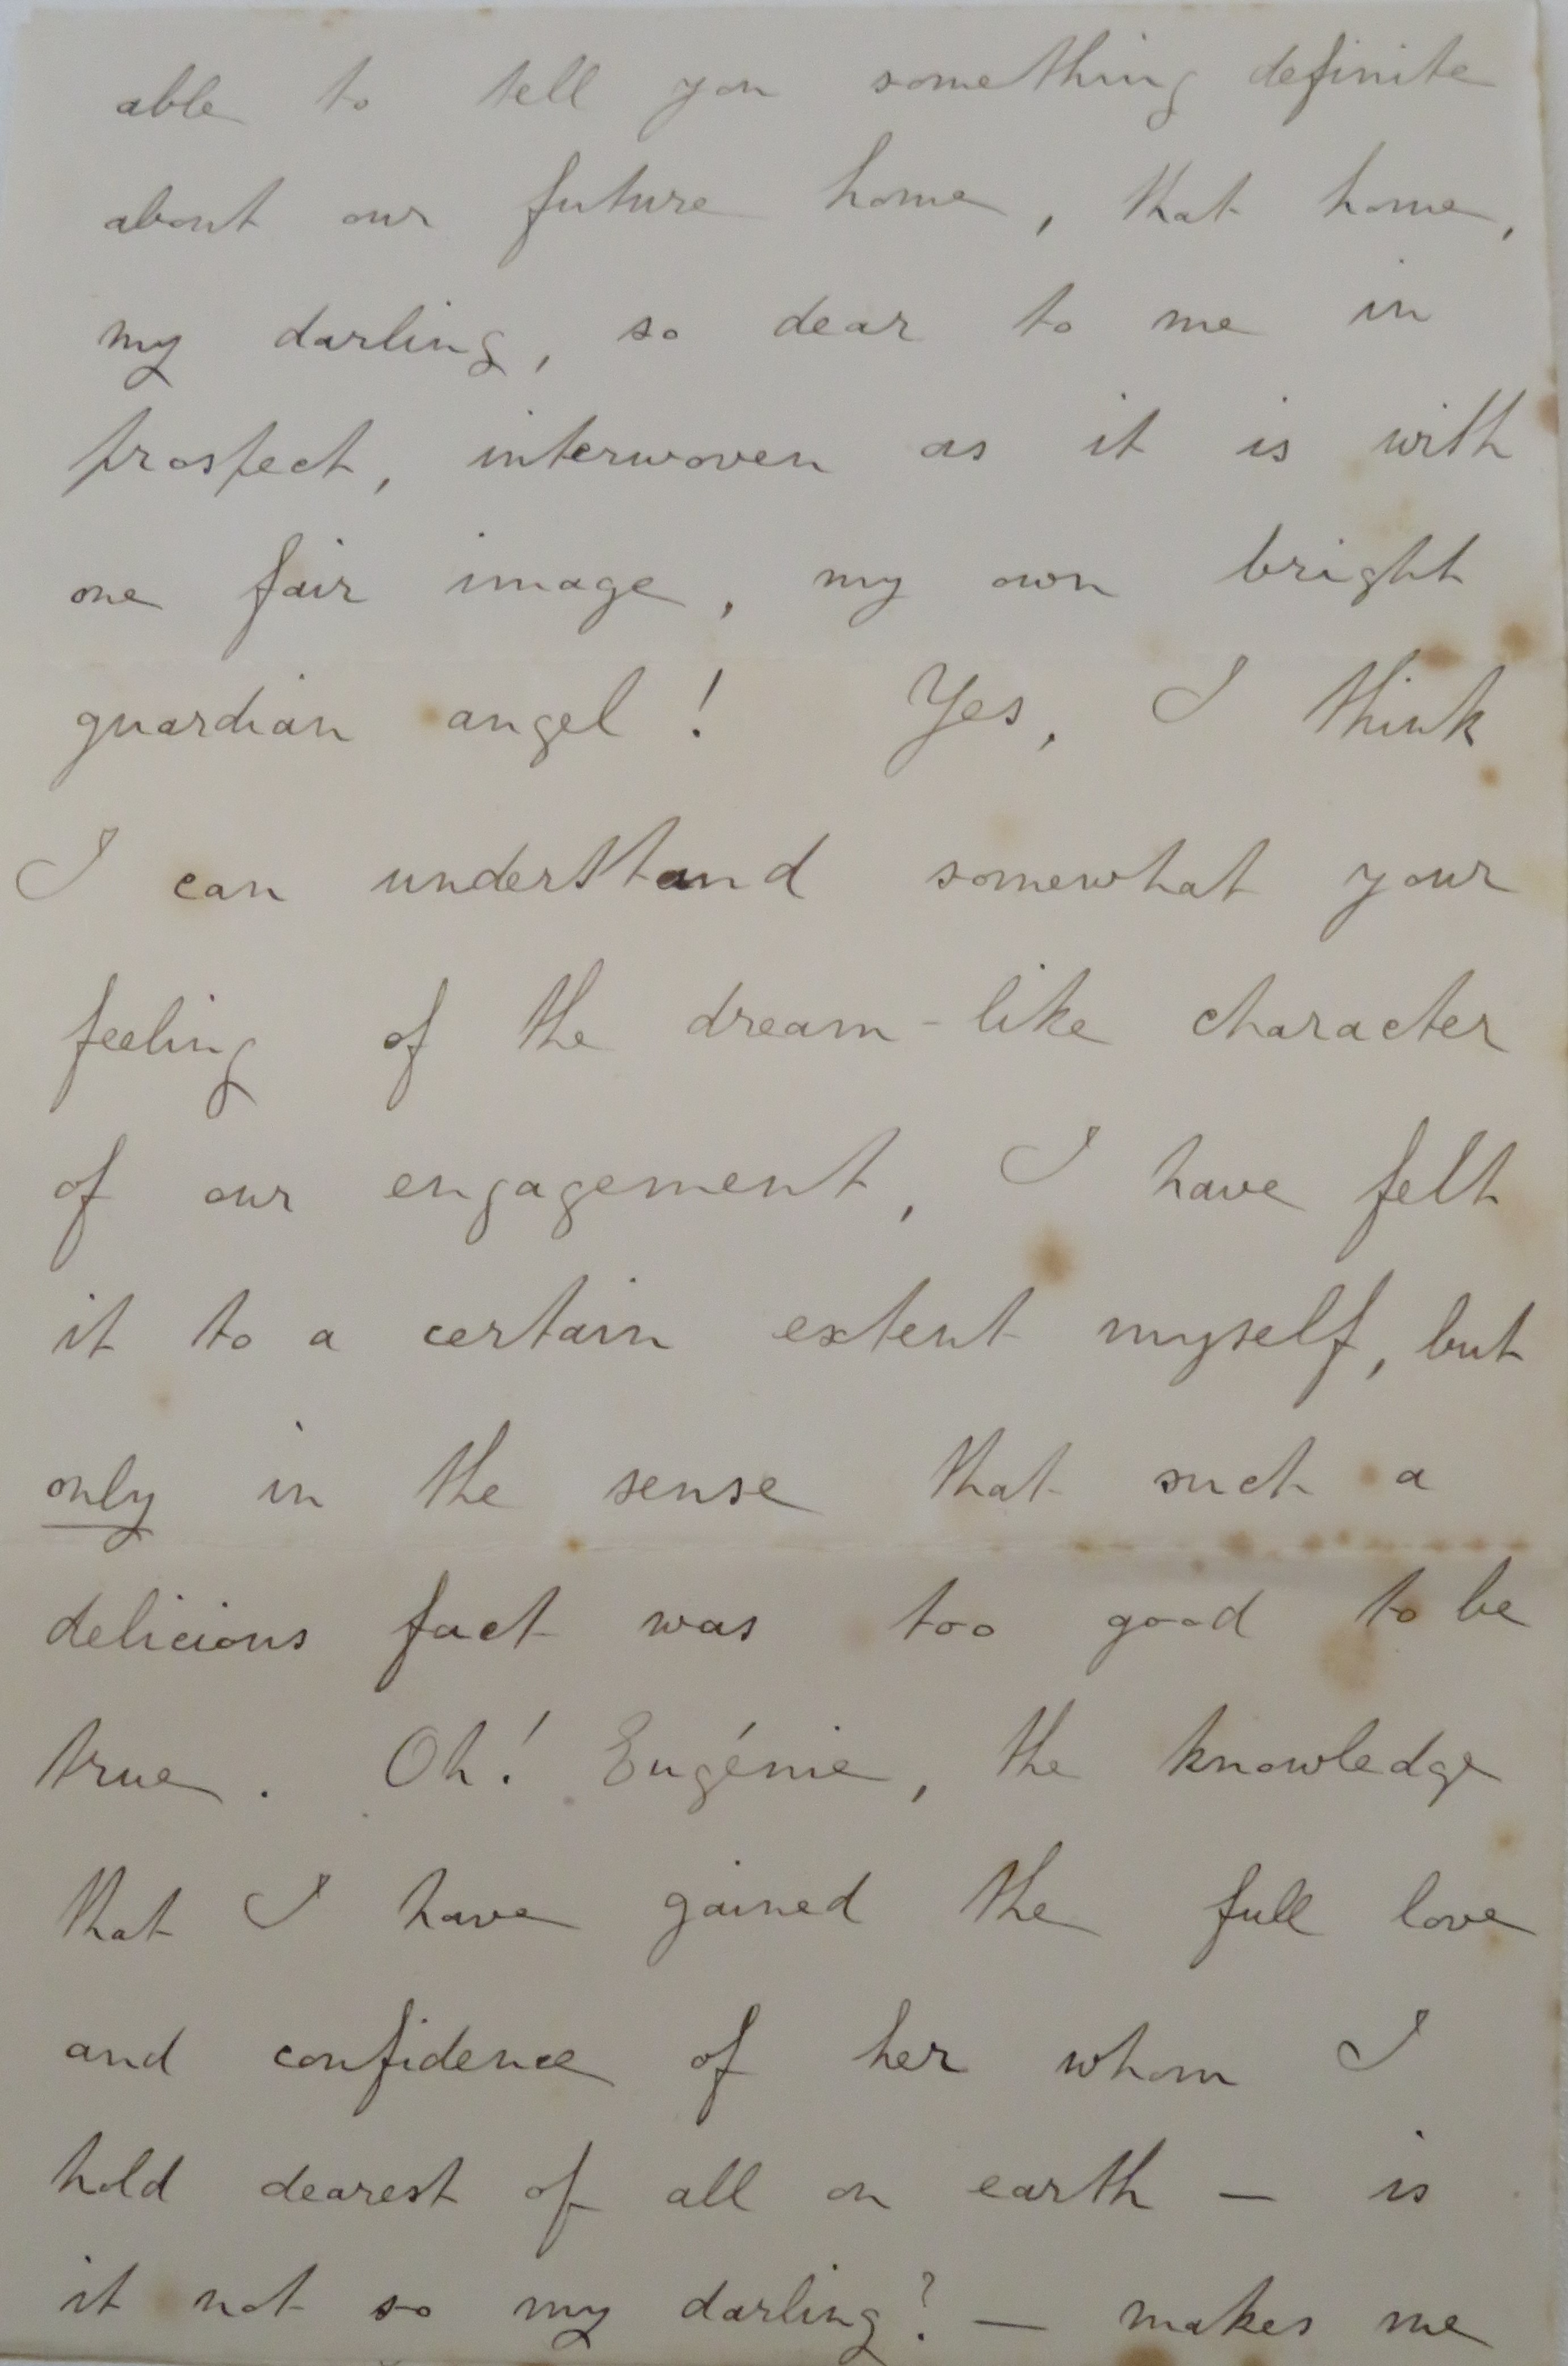 able to tell you something definite
about our future home, that home,
my darling, so dear to me in
prospect, interwoven as it is with
one fair image, my own bright
guardian angel! Yes, I think
I can understand somewhat your
feeling of the dream-like character
of our engagement, I have felt
it to a certain extent myself, but
only in the sense that such a
delicious fact was too good to be
true. Oh! Eugénie, the knowledge
that I have gained the full love
and confidence of her whom I
hold dearest of all on earth — is
it not so my darling? — makes me